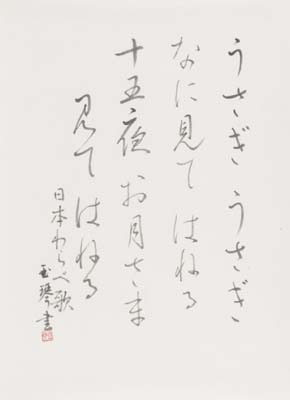 うさぎ うさぎ
なに見て はねる
十五夜 お月さま
見て はねる
日本わらべ歌
玉琴書